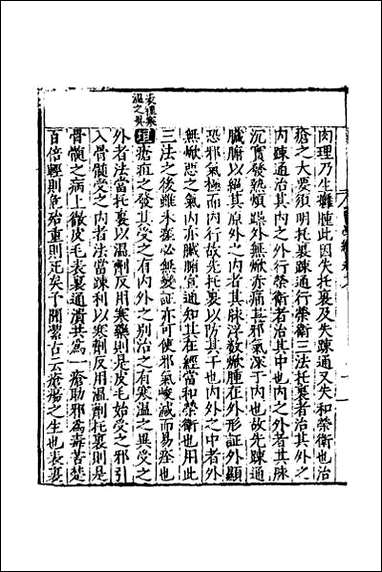 肉理乃生癰腫此因失托裏及失疎通又失和榮衛也治
瘡之大要須明托裏疎通行榮衛三法托裏者治其外之
内疎通治其内之外行榮衛者治其中也内之外者其脉
沉實發熱煩躁外無焮赤痛其邪氣深于内也故先疎通
臟腑以絕其原外之内者其脉浮數焮腫在外形証外顯
恐邪氣極而内行故先托裏以防其干也内外之中者外
無焮惡之氣内亦臟腑宣通知其在經當和榮衛也用此
三法之後雖未瘥必無變証亦可使邪氣峻減而易痊也
表裏寒
溫之異
垣瘡疽之發其受之有内外之别治之有寒溫之異受之
外者法當托裏以溫劑反用寒藥則是皮毛始受之邪引
入骨髓受之内者法當疎利以寒劑反用溫劑托裏則是
骨髓之病上徹皮毛表裏通潰共爲一瘡助邪爲毒苦楚
百倍輕則危殆重則死矣予聞潔古云瘡瘍之生也表裏